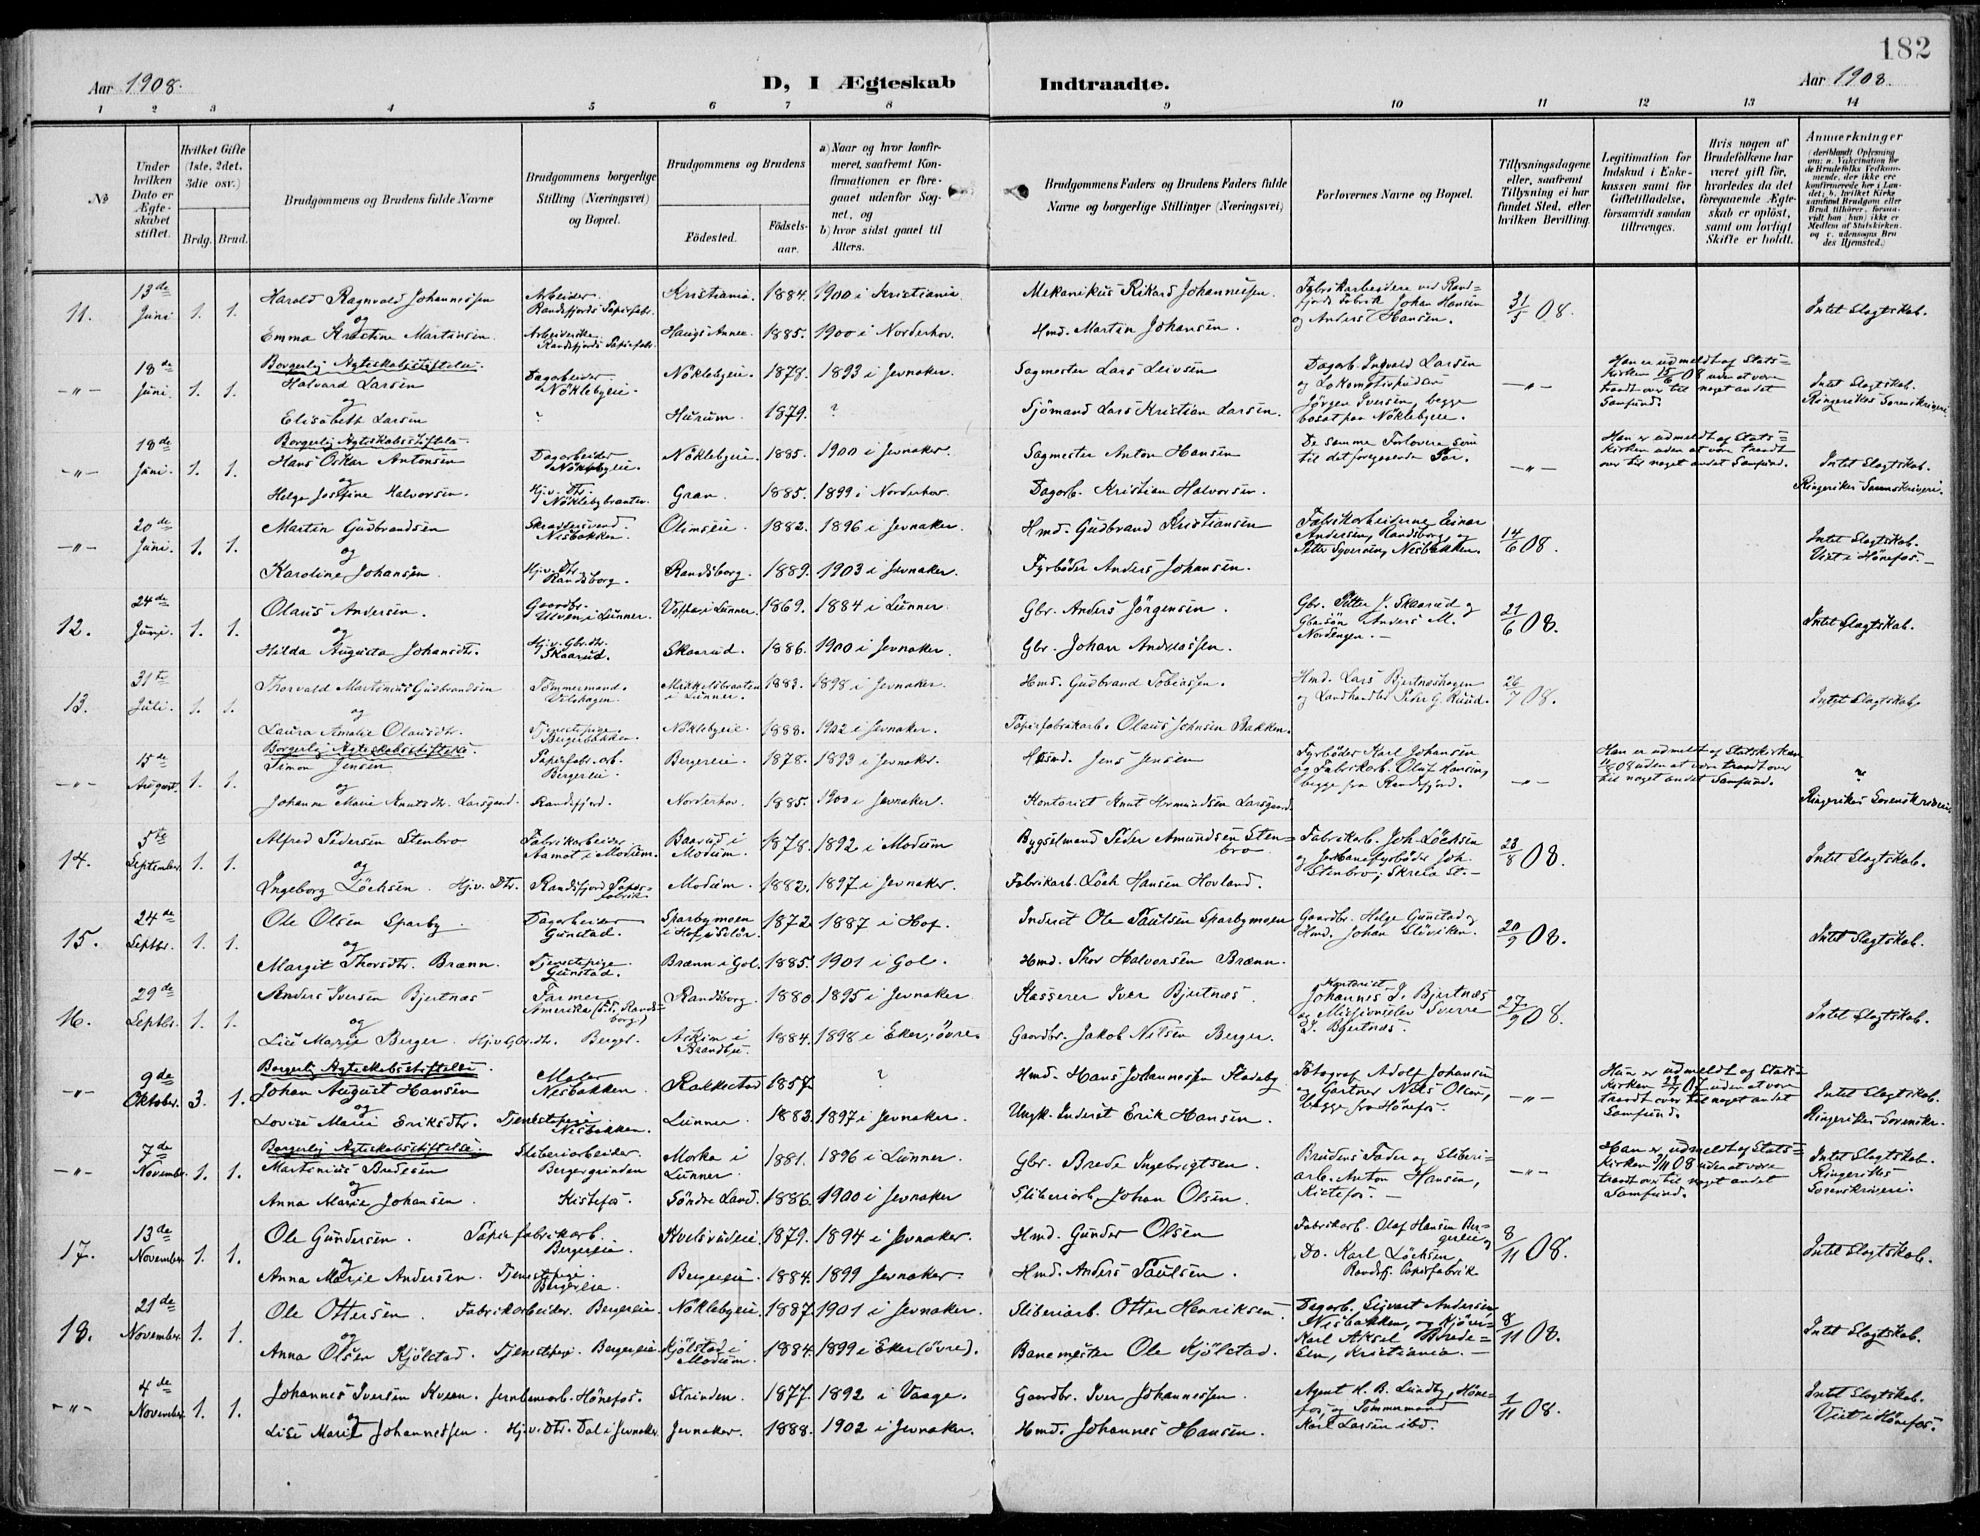 182
Aar 1908.
D, I Ægteskab Indtraadte.
Aar 1908.
1 2 3 4 5 6 7 8 9 10 11 12 13 14
No
Under hvilken Dato er Ægteskabet stiftet.
Hvilket Gifte (1ste, 2det, 3die osv.)
Brdg. Brud.
Brudgommens og Brudens fulde Navne
Brudgommens borgerlige Stilling (Næringsvei) og Bopæl.
Brudgommens og Brudens
Fødested.
Fødselsaar.
a) Naar og hvor konfirmeret, saafremt Konfirmationen er foregaaet udenfor Sognet, og
b) hvor sidst gaaet til Alters.
Brudgommens Faders og Brudens Faders fulde Navne og borgerlige Stillinger (Næringsvei)
Forlovernes Navne og Bopæl.
Tillysningsdagene eller, saafremt Tillysning ei har fundet Sted, efter hvilken Bevilling.
Legitimation for Indskud i Enkekassen samt for Giftetilladelse, forsaavidt saadan tiltrænges.
Hvis nogen af Brudefolkene har været gift før, hvorledes da det foregaaende Ægteskab er opløst, samt om lovligt Skifte er holdt.
Anmærkninger
(deriblandt Oplysning om: a. Vakcination for de Brudefolks Vedkommende, der ikke ere konfirmerede her i Landet; b. hvilket Kirkesamfund Brudgom eller Brud tilhører, forsaavidt han (hun) ikke er Medlem af Statskirken, og c. udensogns Brudes Hjemsted.)
11. 13de Juni 1. 1. Harald Ragnvald Johannessen Arbeider. Randsfjords Papirfabr. Kristiania. 1884. 1900 i Kristiania Mekanikus Rikard Johannessen. Fabrikarbeidere ved Randsfjords Fabrik Johan Hansen og Anders Hansen. 31/5 08. Intet Slagtskab.
og
Emma Kristine Martinsen. Arbeiderske. Randsfjords Papirfabr. Haugs Annex. 1885. 1900 i Norderhov. Hmd. Martin Johansen.
-"- 18de Juni. 1. 1. Borgerlig Ægteskabsstiftelse.
Halvard Larsen Dagarbeider Nöklebyeie. Nöklebyeie. 1878. 1893 i Jevnaker. Sagmester Lars Leivsen Dagarb. Ingvald Larsen og Lokomotivpudser Jörgen Iversen, begge bosat paa Nöklebyeie. -"- Han er udmeldt af Statskirken 15/6 08 uden at være traadt over til noget andet Samfund. Intet Slagtskab. Ringerikes Sorenskriveri.
og
Elisabeth Larsen ? Hurum. 1879. ? Sjömand Lars Kristian Larsen.
-"- 18de Juni. 1. 1. Borgerlig Ægteskabsstiftelse
Hans Oskar Antonsen Dagarbeider Nöklebyeie. Nöklebyeie. 1885. 1900 i Jevnaker. Sagmester Anton Hansen De samme Forlovere som til det foregaaende Par. -"- Han er udmeldt af Statskirken uden at være traadt over til noget andet Samfund. Intet Slagtskab. Ringerikes Sorenskriveri.
og
Helga Josefine Halvorsen. Hjv. Dtr. Nöklebybraaten. Gran. 1885. 1899 i Norderhov. Dagarb. Kristian Halvorsen.
-"- 20de Juni. 1. 1. Martin Gudbrandsen Skrædersvend. Nesbakken. Olimseie. 1882. 1896 i Jevnaker. Hmd. Gudbrand Kristiansen Fabrikarbeiderne Einar Andersen, Randsborg, og Petter Syversen, Nesbakken. 14/6 08. Intet Slagtskab. Viet i Hönefos.
og
Karoline Johansen. Hjv. Dtr. Randsborg. Randsborg. 1889. 1903 i Jevnaker. Fyrböder Anders Johansen.
12. 24de Juni. 1. 1. Olaus Andersen. Gaardbr. Ulven i Lunner. i Lunner. 1869. 1884 i Lunner. Gbr. Anders Jörgensen. Gbr. Petter J. Skaarud og Gbrsön Anders M. Nordengen. 21/6 08. Intet Slagtskab.
og
Hilda Augusta Johansdtr. Hjv. Gbrdtr. Skaarud. Skaarud. 1886. 1900 i Jevnaker. Gbr. Johan Andreassen.
13. 31te Juli. 1. 1. Thorvald Martinius Gudbrandsen Tömmermand. Mikkelsbraaten i Lunner. 1883. 1898 i Jevnaker. Hmd. Gudbrand Tobiassen. Hmd. Lars Bjertneshagen og Landhandler Peder G. Ruud. 26/7 08. Intet Slagtskab.
og
Laura Amalie Olausdtr. Tjenestepige. Bergerbakken. Nöklebyeie. 1888. 1902 i Jevnaker. Papirfabrikarb. Olaus Johnsen Bakken.
-"- 15de August. 1. 1. Borgerlig Ægteskabsstiftelse.
Simon Jensen Papirfabr. arb. Bergereie. Bergereie. 1878. 1893 i Jevnaker. Husmd. Jens Jensen Fyrböder Karl Johansen og Fabrikarb. Oluf Hansen, begge fra Randsfjord. -"- Han er udmeldt af Statskirken 11/8 08 uden at være traadt over til noget andet Samfund. ? Ringerikes Sorenskriveri
og
Johanne Marie Knutsdtr. Larsgaard. Randsfjord. Norderhov. 1885. 1900 i Jevnaker. Kontorist Knut Larsgaard
14. 5te September. 1. 1. Alfred Pedersen Stenbro Fabrikarbeider Aamot i Modum. Baarud i Modum. 1878. 1892 i Modum Bygselmand Peder Amundsen Stenbro Fabrikarb. Joh. Löchsen og Jernbanefyrböder Joh. Stenbro, St. 23/8 08. Intet Slagtskab.
og
Ingeborg Löchsen. Hjv. Dtr. Randsfjord Papirfabrik Modum. 1882. 1897 i Jevnaker. Fabrikarb. Löch Hansen Hovland.
15. 24de Septbr. 1. 1. Ole Olsen Sparby. Dagarbeider Gunstad. Sparbymoen i Hof i Solör. 1872 1887 i Hof. Inderst Ole Paulsen Sparbymoen Gaardbr. Helge Gunstad og Hmd. Johan Slöviken. 20/9 08. Intet Slagtskab.
og
Margit Thorsdtr. Brænn. Tjenestepige Gunstad. Brænn i Gol. 1885. 1901 i Gol. Hmd. Thor Halvorsen Brænn.
16. 29de Septbr. 1. 1. Anders Iversen Bjertnæs Farmer Amerika (p.t. Randsborg.) Randsborg. 1880 1895 i Jevnaker Kasserer Iver Bjertnæs. Kontorist Johannes J. Bjertnæs og Missionselev Sverre I. Bjertnæs. 27/9 08. Intet Slagtskab.
og
Lise Marie Berger. Hjv. Gbrdtr. Berger. Askim i Brandbu. 1884. 1898 i Eker, övre. Gaardbr. Jakob Nilsen Berger.
-"- 9de Oktober. 3. 1. Borgerlig Ægteskabsstiftelse.
Johan August Hansen Maler Nesbakken. Rakkestad 1857. ? Hmd. Hans Johannessen Fladeby. Fotograf Adolf Johansen og Gartner Nils Olsen, begge fra Hönefos. -"- Han er udmeldt af Statskirken uden at være traadt over til noget andet Samfund. Intet Slagtskab. Ringerikes Sorenskr.
og
Lovise Marie Eriksdtr. Tjenestepige Nesbakken. Lunner. 1883. 1897 i Jevnaker. Ungk. Inderst Erik Hansen.
-"- 7de November. 1. 1. Borgerlig Ægteskabsstiftelse.
Martinius Bredesen Sliberiarbeider. Bergergrinden Morka i Lunner. 1881. 1896 i Lunner. Gbr. Brede Ingebrigtsen. Brudens Fader og Sliberiarb. Anton Hansen, Kistefos. -"- Han er udmeldt af Statskirken 3/11 08 uden at være traadt over til noget andet Samfund. Intet Slagtskab. Ringerikes Sorenskriveri.
og
Anna Marie Johansen. Kistefos. Söndre Land. 1886. 1900 i Jevnaker Sliberiarb. Johan Olsen.
17. 13de November. 1. 1. Ole Gundersen. Papirfabrikarb. Bergereie. Kvelsrudeie. 1879. 1894 i Jevnaker. Hmd. Gunder Olsen Fabrikarb. Olaf Hansen Bergereie og Do. Karl Löchsen, Randsfj. Papirfabrik 8/11 08. Intet Slagtskab.
og
Anna Marie Andersen. Tjenestepige. Bergereie. Bergereie. 1884. 1899 Jevnaker. Hmd. Anders Paulsen.
18. 21de November. 1. 1. Ole Ottersen. Fabrikarbeider. Bergereie. Nöklebyeie. 1887. 1901 i Jevnaker. Sliberiarb. Otter Henriksen Dagarb. Sigvart Andersen, Nesbakken, og Karl Aksel Bredesen, Kristiania. 8/11 08. Intet Slagtskab.
og
Anna Olsen Kjölstad. Tjenestepige. Bergereie. Kjölstad i Modum. 1884. 1899 i Eker (övre). Banemester Ole Kjölstad.
-"- 4de November. 1. 1. Johannes Iversen Kveen. Jernbanearb. Hönefos. Strinden. 1877. 1892 i Vaage. Gaardbr. Iver Johannessen. Agent H. B. Lundby, Hönefos, og Tömmermand Karl Larsen ibd. 1/11 08. Intet Slagtskab. Viet i Hönefos.
og
Lise Marie Johannessen. Hjv. Dtr. Dal i Jevnaker. Jevnaker. 1888. 1902 i Jevnaker. Hmd. Johannes Hansen.